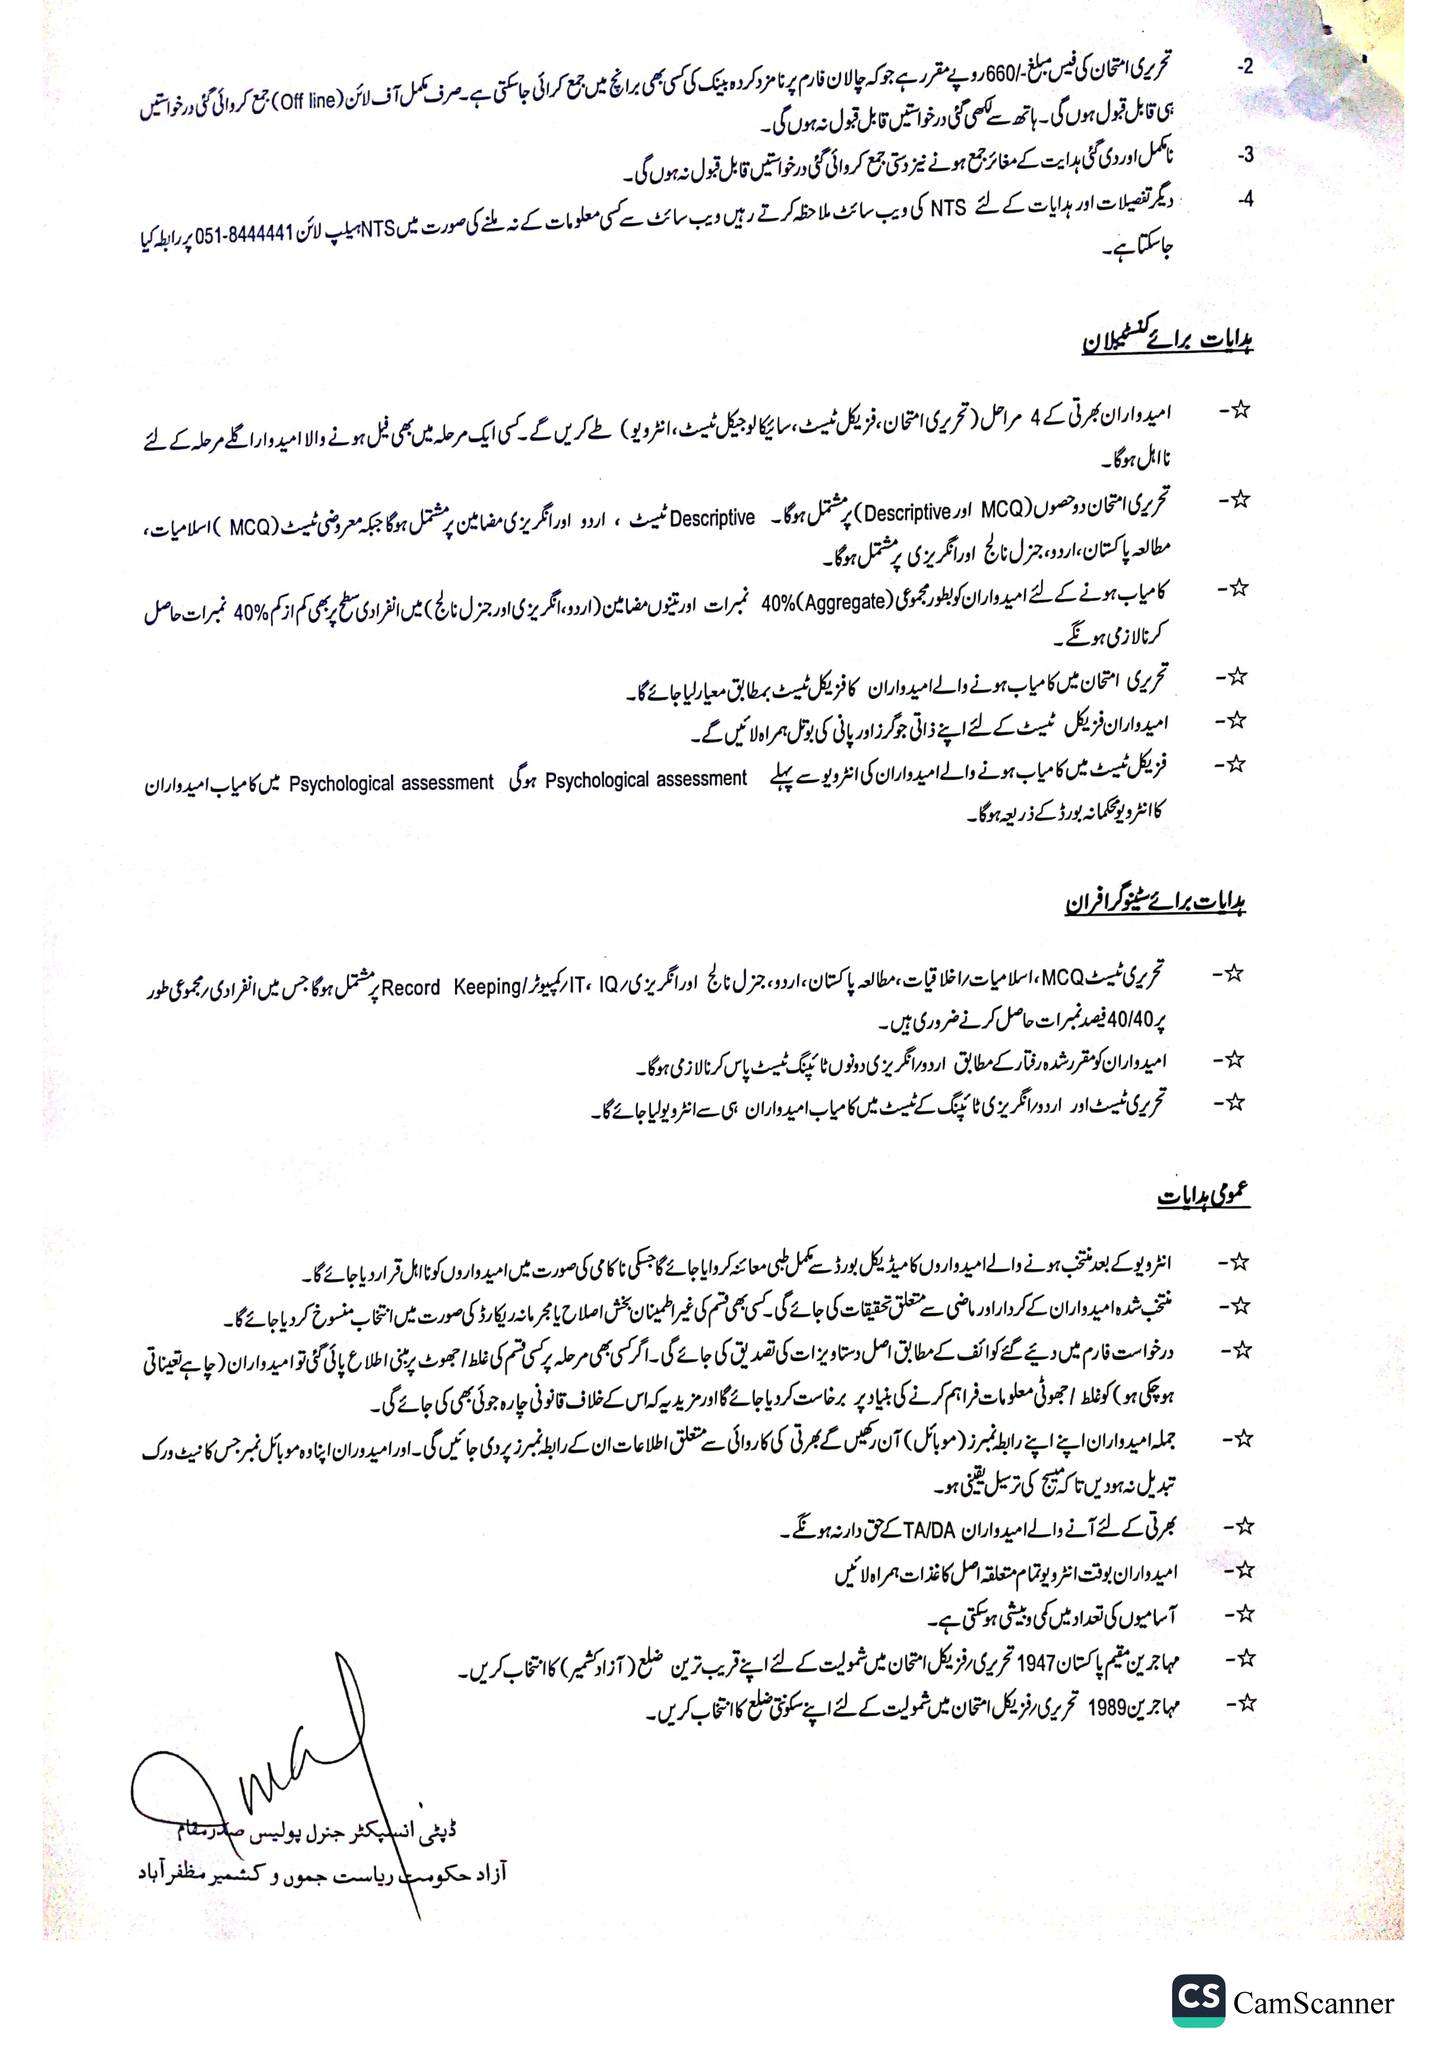 2- تحریری امتحان کی فیس مبلغ -/660 روپے مقرر ہے جو کہ چالان فارم پر نامزد کردہ بینک کی کسی بھی برانچ میں جمع کرائی جاسکتی ہے۔ صرف مکمل آف لائن (Off line) جمع کروائی گئی درخواستیں
ہی قابل قبول ہوں گی۔ ہاتھ سے لکھی گئی درخواستیں قابل قبول نہ ہوں گی۔
3- نامکمل اور دی گئی ہدایت کے مغائر جمع ہونے نیز دستی جمع کروائی گئی درخواستیں قابل قبول نہ ہوں گی۔
4- دیگر تفصیلات اور ہدایات کے لئے NTS کی ویب سائٹ ملاحظہ کرتے رہیں ویب سائٹ سے کسی معلومات کے نہ ملنے کی صورت میں NTS ہیلپ لائن 051-8444441 پر رابطہ کیا
جاسکتا ہے۔
ہدایات برائے کنسٹیبلان
☆- امیدواران بھرتی کے 4 مراحل (تحریری امتحان، فزیکل ٹیسٹ، سائیکالوجیکل ٹیسٹ، انٹرویو) طے کریں گے۔ کسی ایک مرحلہ میں بھی فیل ہونے والا امیدوار اگلے مرحلہ کے لئے
نااہل ہوگا۔
☆- تحریری امتحان دو حصوں (MCQ اور Descriptive) پر مشتمل ہوگا۔ Descriptive ٹیسٹ ، اردو اور انگریزی مضامین پر مشتمل ہوگا جبکہ معروضی ٹیسٹ (MCQ) اسلامیات،
مطالعہ پاکستان، اردو، جنرل نالج اور انگریزی پر مشتمل ہوگا۔
☆- کامیاب ہونے کے لئے امیدواران کو بطور مجموعی (Aggregate) 40% نمبرات اور تینوں مضامین (اردو، انگریزی اور جنرل نالج) میں انفرادی سطح پر بھی کم از کم 40% نمبرات حاصل
کرنا لازمی ہونگے۔
☆- تحریری امتحان میں کامیاب ہونے والے امیدواران کا فزیکل ٹیسٹ بمطابق معیار لیا جائے گا۔
☆- امیدواران فزیکل ٹیسٹ کے لئے اپنے ذاتی جوگرز اور پانی کی بوتل ہمراہ لائیں گے۔
☆- فزیکل ٹیسٹ میں کامیاب ہونے والے امیدواران کی انٹرویو سے پہلے Psychological assessment ہوگی Psychological assessment میں کامیاب امیدواران
کا انٹرویو محکمانہ بورڈ کے ذریعہ ہوگا۔
ہدایات برائے سٹینوگرافران
☆- تحریری ٹیسٹ MCQ، اسلامیات/اخلاقیات، مطالعہ پاکستان، اردو، جنرل نالج اور انگریزی/IQ ،IT/کمپیوٹر/Record Keeping پر مشتمل ہوگا جس میں انفرادی/مجموعی طور
پر 40/40 فیصد نمبرات حاصل کرنے ضروری ہیں۔
☆- امیدواران کو مقرر شدہ رفتار کے مطابق اردو/انگریزی دونوں ٹائپنگ ٹیسٹ پاس کرنا لازمی ہوگا۔
☆- تحریری ٹیسٹ اور اردو/انگریزی ٹائپنگ کے ٹیسٹ میں کامیاب امیدواران ہی سے انٹرویو لیا جائے گا۔
عمومی ہدایات
☆- انٹرویو کے بعد منتخب ہونے والے امیدواروں کا میڈیکل بورڈ سے مکمل طبی معائنہ کروایا جائے گا جسکی ناکامی کی صورت میں امیدواروں کو نااہل قرار دیا جائے گا۔
☆- منتخب شدہ امیدواران کے کردار اور ماضی سے متعلق تحقیقات کی جائے گی۔ کسی بھی قسم کی غیر اطمینان بخش اصلاح یا مجرمانہ ریکارڈ کی صورت میں انتخاب منسوخ کر دیا جائے گا۔
☆- درخواست فارم میں دیئے گئے کوائف کے مطابق اصل دستاویزات کی تصدیق کی جائے گی۔ اگر کسی بھی مرحلہ پر کسی قسم کی غلط/جھوٹ پر مبنی اطلاع پائی گئی تو امیدواران (چاہے تعیناتی
ہوچکی ہو) کو غلط/جھوٹی معلومات فراہم کرنے کی بنیاد پر برخاست کر دیا جائے گا اور مزید یہ کہ اس کے خلاف قانونی چارہ جوئی بھی کی جائے گی۔
☆- جملہ امیدواران اپنے اپنے رابطہ نمبرز (موبائل) آن رکھیں گے بھرتی کی کاروائی سے متعلق اطلاعات ان کے رابطہ نمبرز پر دی جائیں گی۔ اور امیدوران اپنا وہ موبائل نمبر جس کا نیٹ ورک
تبدیل نہ ہو دیں تاکہ میسج کی ترسیل یقینی ہو۔
☆- بھرتی کے لئے آنے والے امیدواران TA/DA کے حق دار نہ ہونگے۔
☆- امیدواران بوقت انٹرویو تمام متعلقہ اصل کاغذات ہمراہ لائیں
☆- آسامیوں کی تعداد میں کمی و بیشی ہوسکتی ہے۔
☆- مہاجرین مقیم پاکستان 1947 تحریری/فزیکل امتحان میں شمولیت کے لئے اپنے قریب ترین ضلع (آزاد کشمیر) کا انتخاب کریں۔
☆- مہاجرین 1989 تحریری/فزیکل امتحان میں شمولیت کے لئے اپنے سکونتی ضلع کا انتخاب کریں۔
ڈپٹی انسپکٹر جنرل پولیس صدر مقام
آزاد حکومت ریاست جموں و کشمیر مظفر آباد
CS CamScanner